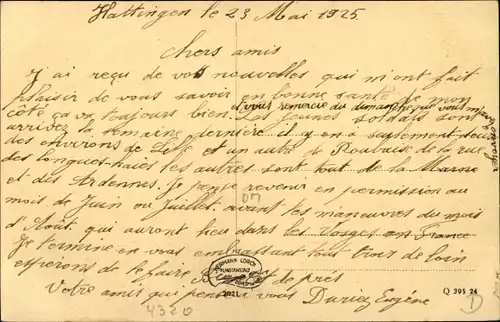 Hattingen le 23 Mai 1925
chers amis
J'ai reçu de vos nouvelles qui m'ont fait
plaisir de vous savoir en bonne santé de mon
et vous remercie du dimanche que vous m'
côté ça va toujours bien. Les jeunes soldats sont
arrivez la semaine dernière il y en a seulement deux
des environs de Lille et un autre de Roubaix de la rue
des longues haies les autres sont tout de la Marne
et des Ardennes. Je pense revenir en permission au
mois de Juin ou Juillet avant les manœuvres du mois
d'Août qui auront lieu dans les Vosges en France
Je termine en vous embrassant tout trois de loin
espérons de le faire de près
Votre amis qui pense à vous Duriez Eugène
HERMANN LORCH
KUNSTANSTALT
2021
Q 395 24
4320
D